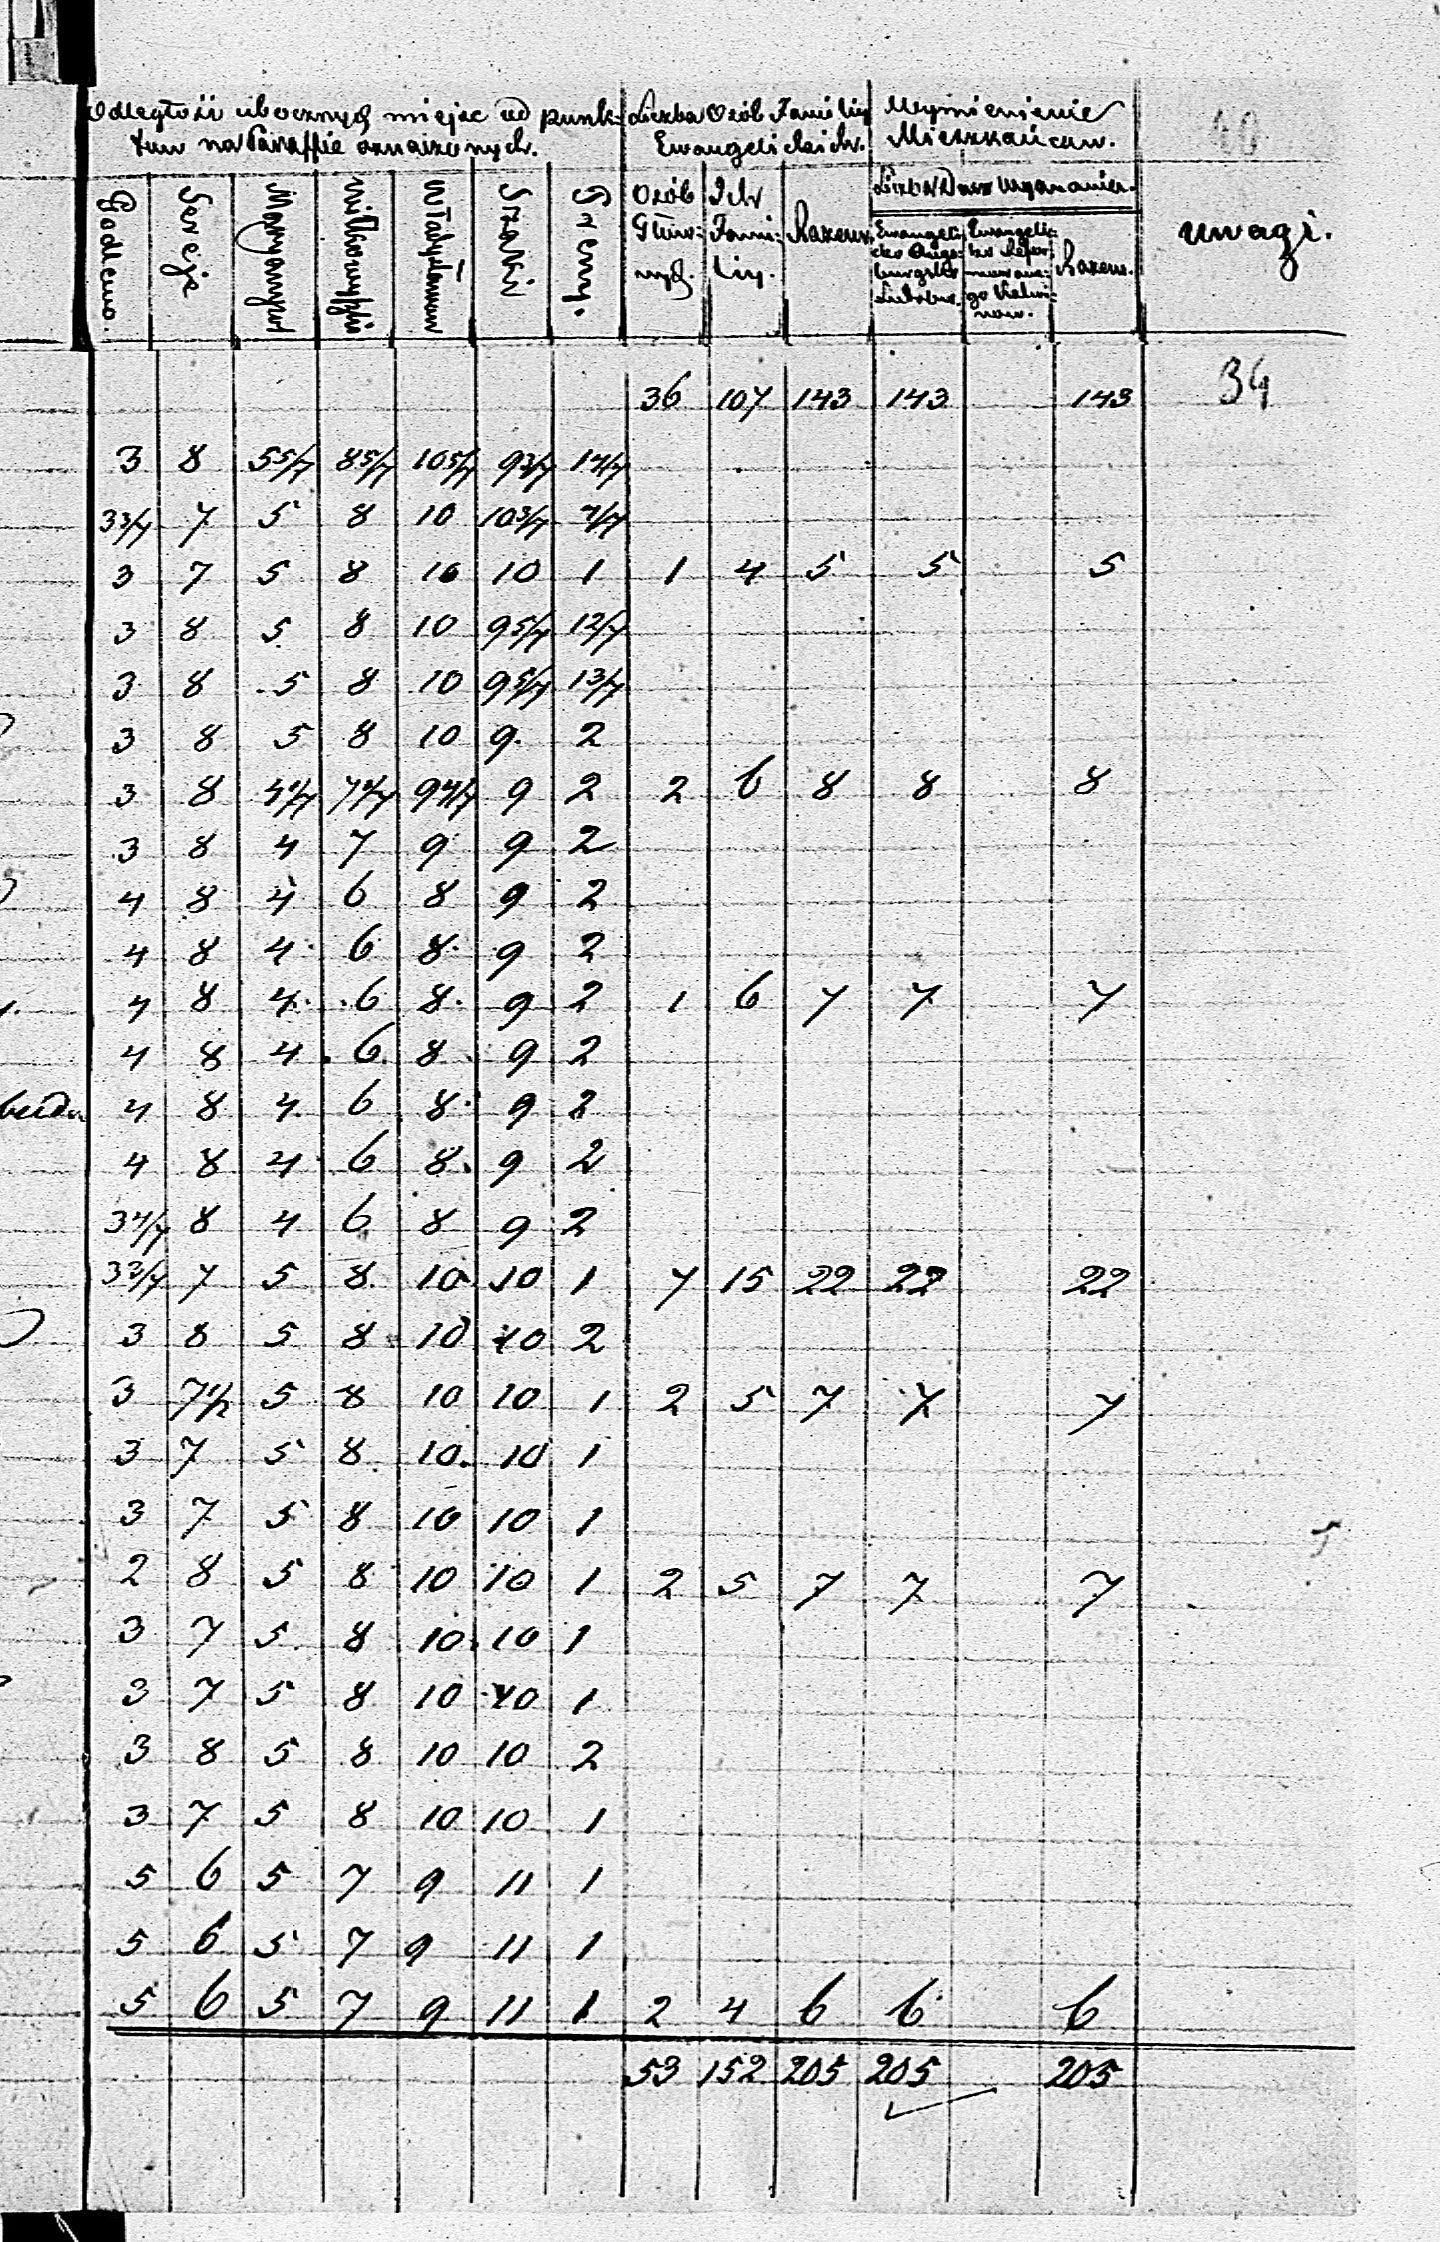 Odległość ubocznych miejsc od punk-
tów na Paraffie oznaczonych.
Liczba Osób Familiy
Ewangelickich.
Wymienienie
Mieszkańców.
40
Liczba Dusz Wyznania.
Godlewo.
Sereje
Maryampol
Wiłkowyszki
Władysławów
Szaki
Preny.
Osób
Głów-
nych.
Ich
Fami-
liy.
Razem.
Ewangeli-
cko Augs-
burgsko
Luthrów.
Ewangelic-
ko Refor-
mowane-
go Kalwi-
now.
Razem.
uwagi.
36 107 143 143 143 34
3 8 55/7 85/7 105/7 93/7 14/7
33/7 7 5 8 10 103/7 4/7
3 7 5 8 10 10 1 1 4 5 5 5
3 8 5 8 10 95/7 12/7
3 8 5 8 10 95/7 13/7
3 8 5 8 10 9 2
3 8 44/7 74/7 94/7 9 2 2 6 8 8 8
3 8 4 7 9 9 2
4 8 4 6 8 9 2
4 8 4 6 8 9 2
4 8 4 6 8 9 2 1 6 7 7 7
4 8 4 6 8 9 2
4 8 4 6 8 9 2
4 8 4 6 8 9 2
34/7 8 4 6 8 9 2
33/7 7 5 8 10 10 1 7 15 22 22 22
3 8 5 8 10 10 2
3 71/2 5 8 10 10 1 2 5 7 7 7
3 7 5 8 10 10 1
3 7 5 8 10 10 1
2 8 5 8 10 10 1 2 5 7 7 7
3 7 5 8 10 10 1
3 7 5 8 10 10 1
3 8 5 8 10 10 2
3 7 5 8 10 10 1
5 6 5 7 9 11 1
5 6 5 7 9 11 1
5 6 5 7 9 11 1 2 4 6 6 6
53 152 205 205 205